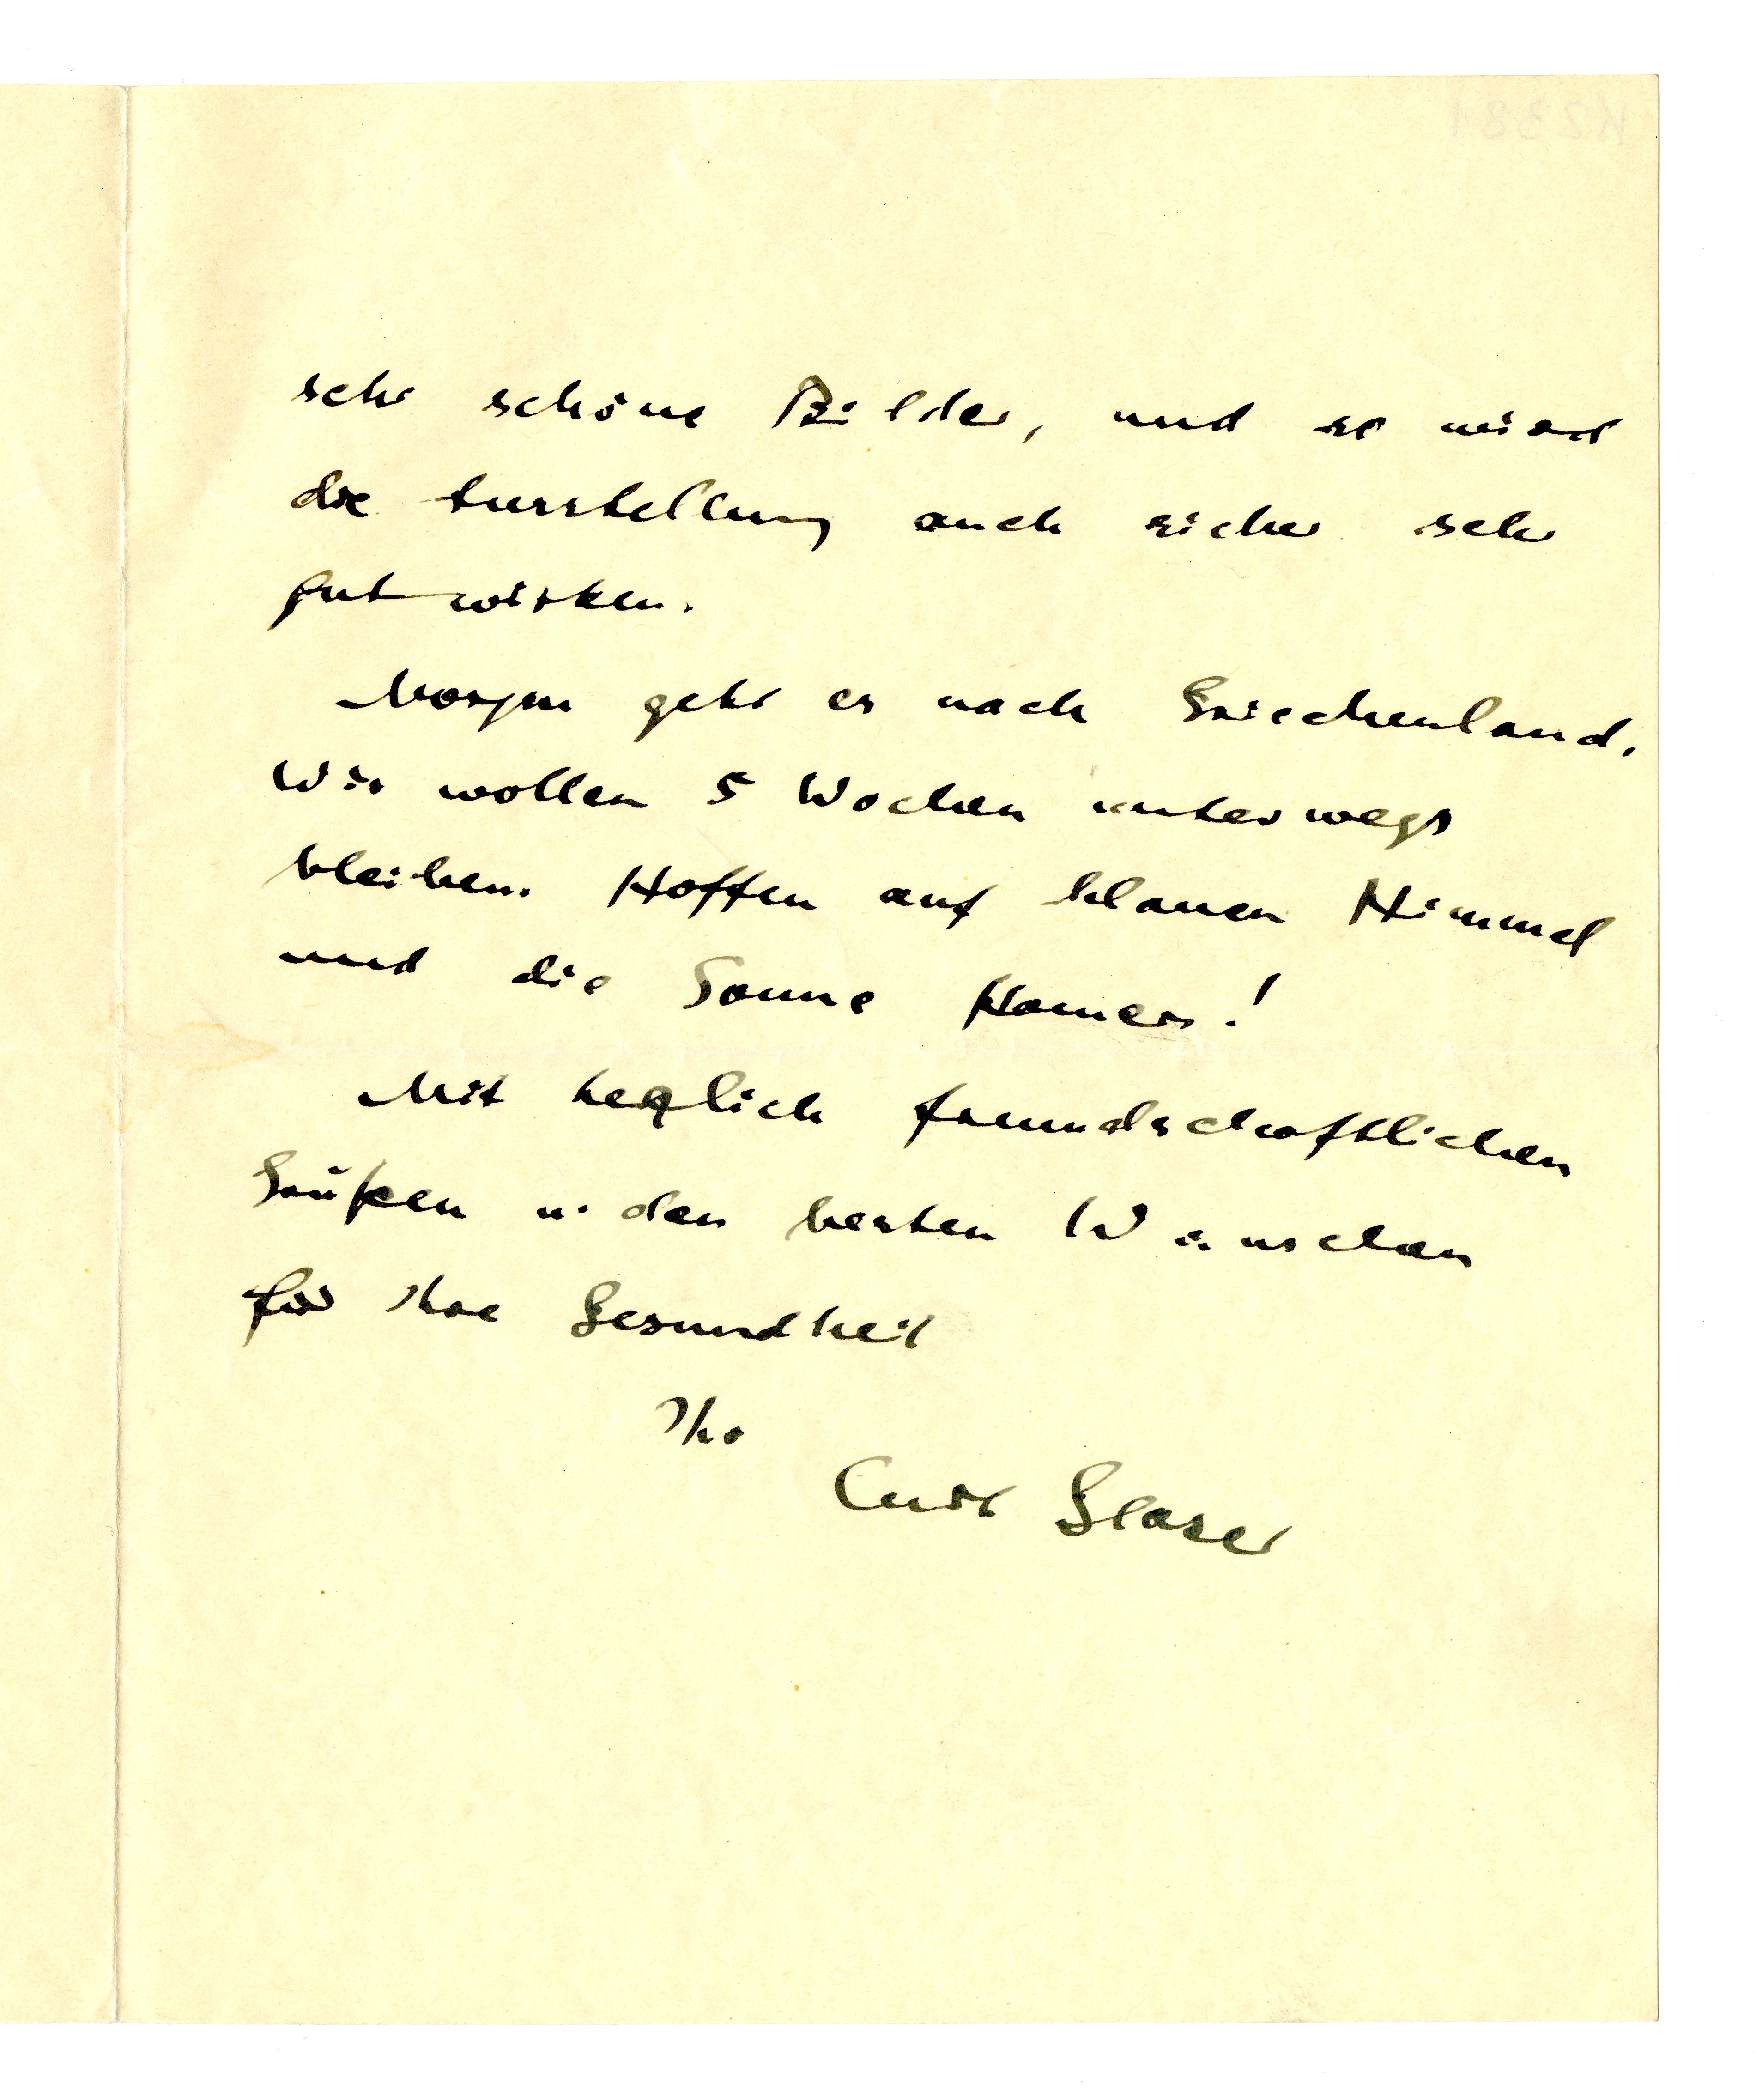 sehr schöne Bilder, und so wird
die Ausstellung auch sicher sehr
gut wirken.
Morgen geht es nach Griechenland.
Wir wollen 5 Wochen unterwegs
bleiben. Hoffen auf blauen Himmel
und die Sonne Homers!
Mit herzlich freundschaftlichen
Grüßen u. den besten Wünschen
für Ihre Gesundheit
Ihr
Curt Glaser